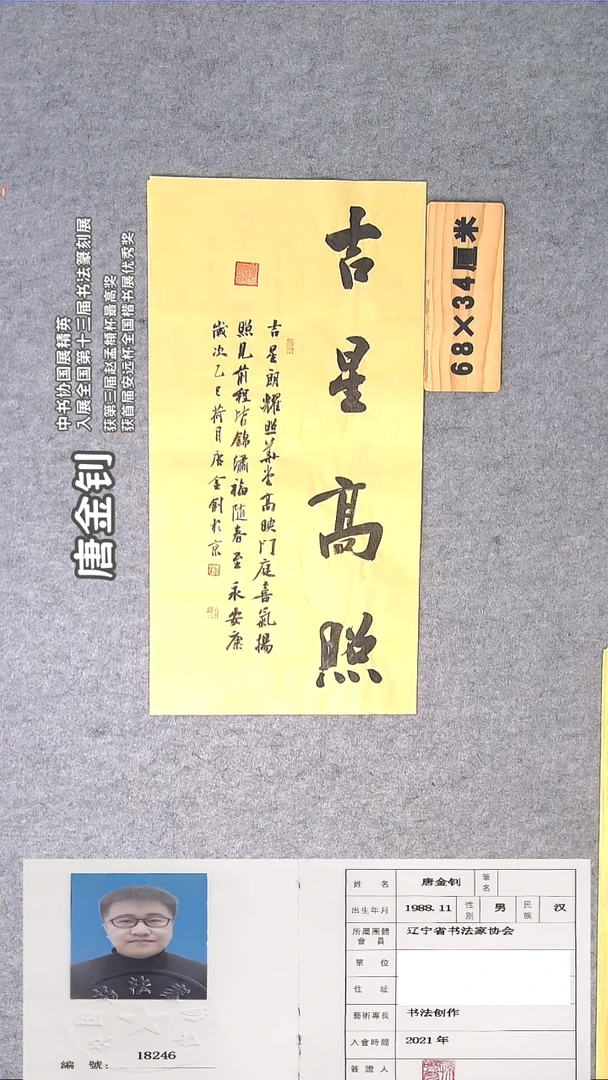 吉星高照
吉星朗耀照華堂高映门庭喜氣揚
照見前程皆錦繡福随春至永安康
歲次乙巳荷月唐金钊於京
68×34厘米
中书协国展精英
入展全国第十三届书法篆刻展
获第三届赵孟頫杯最高奖
获首届安远杯全国楷书展优秀奖
唐金钊
編 號: 18246
姓 名 唐金钊 筆名
出生年月 1988.11 性別 男 民族 汉
所屬團體會員 辽宁省书法家协会
單 位
住 址
藝術專長 书法创作
入會時間 2021年
簽證人